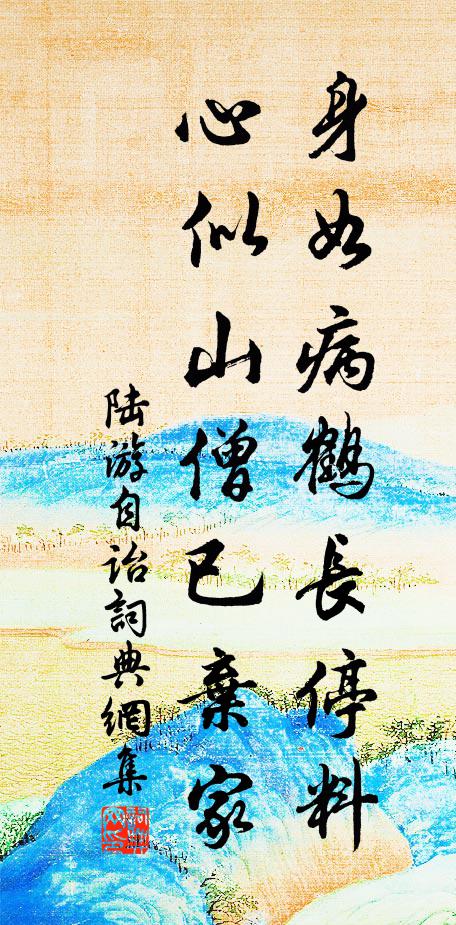 身如病鹤長停料
心似山僧已棄家
陆游自詒詞典網集